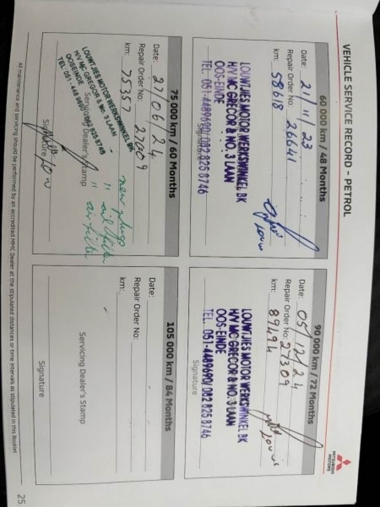 VEHICLE SERVICE RECORD – PETROL
MITSUBISHI MOTORS
60 000 km / 48 Months
Date: 21/11/23
Repair Order No: 26641
km: 58818
LOUWTJIES MOTOR WERKSWINKEL BK
H/V MC GREGOR & NO. 3 LAAN
OOS-EINDE
TEL. 051-4489690/082 825 8746
75 000 km / 60 Months
Date: 27/06/24
Repair Order No: 27009
km: 75357
new plugs
" oil filter
" air filter
LOUWTJIES MOTOR WERKSWINKEL BK
H/V MC GREGOR & NO. 3 LAAN
OOSEINDE
TEL. 051-448 9690/082 825 8746
Servicing Dealer's Stamp
Signature
90 000 km / 72 Months
Date: 05/12/24
Repair Order No: 27309
km: 89494
LOUWTJIES MOTOR WERKSWINKEL BK
H/V MC GREGOR & NO. 3 LAAN
OOS-EINDE
TEL. 051-4489690/082 825 8746
Signature
105 000 km / 84 Months
Date:
Repair Order No:
km:
Servicing Dealer's Stamp
Signature
All maintenance and servicing should be performed by an accredited MMC Dealer at the stipulated distances or time intervals as stipulated in this Booklet
25